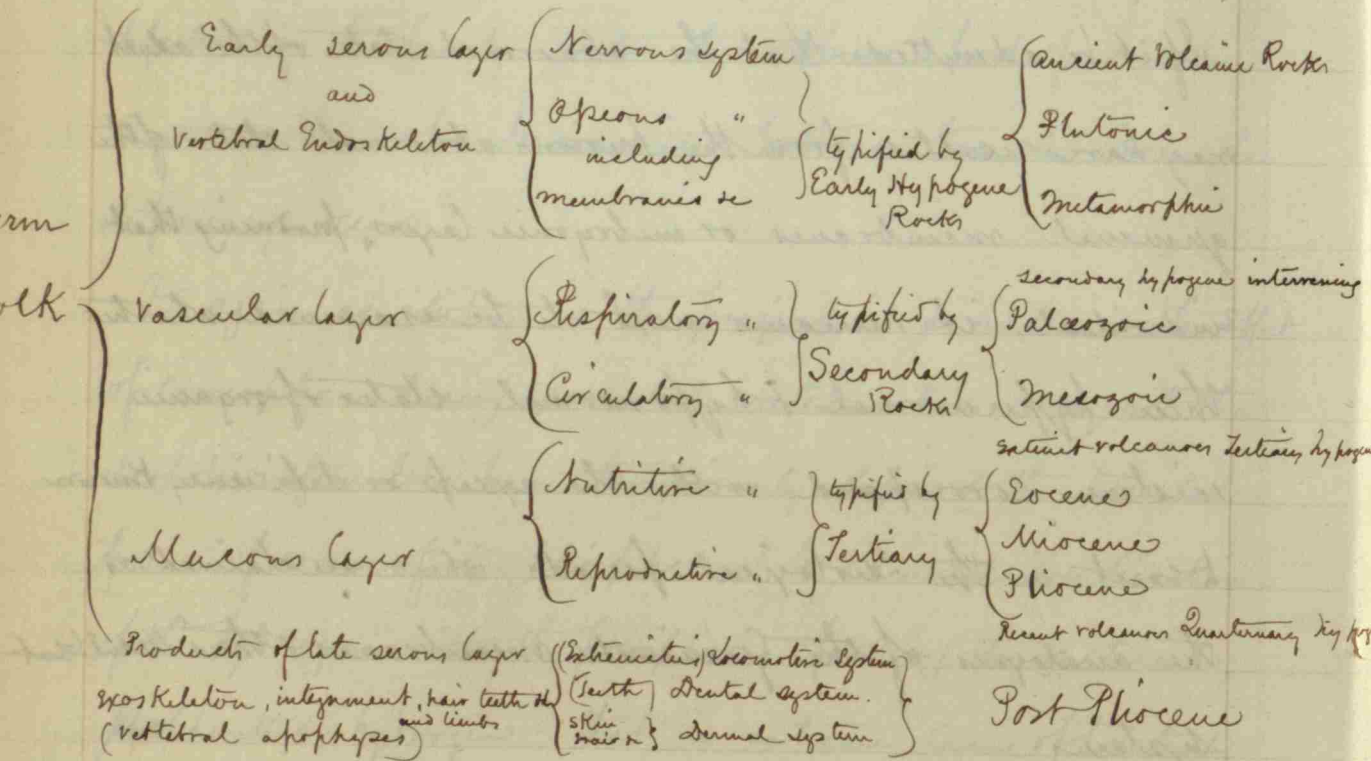 Early serous layer
and
Vertebral Endoskeleton
Nervous system
Osseous "
including
membranes &c
typified by
Early Hypogene
Rocks
Ancient Volcanic Rocks
Plutonic
Metamorphic
Vascular layer
Respiratory "
Circulatory "
typified by
Secondary
Rocks
Secondary hypogene intervening
Palæozoic
Mesozoic
Extinct volcanoes Tertiary hypogene
Mucous layer
Nutritive "
Reproductive "
typified by
Tertiary
Eocene
Miocene
Pliocene
Recent volcanoes Quarternary
Products of late serous layer
Exoskeleton, integument, hair teeth &c
and limbs
(vertebral apophyses)
(Extremities) Locomotive System
(Teeth) Dental system.
Skin
hair &c } Dermal system
Post Pliocene